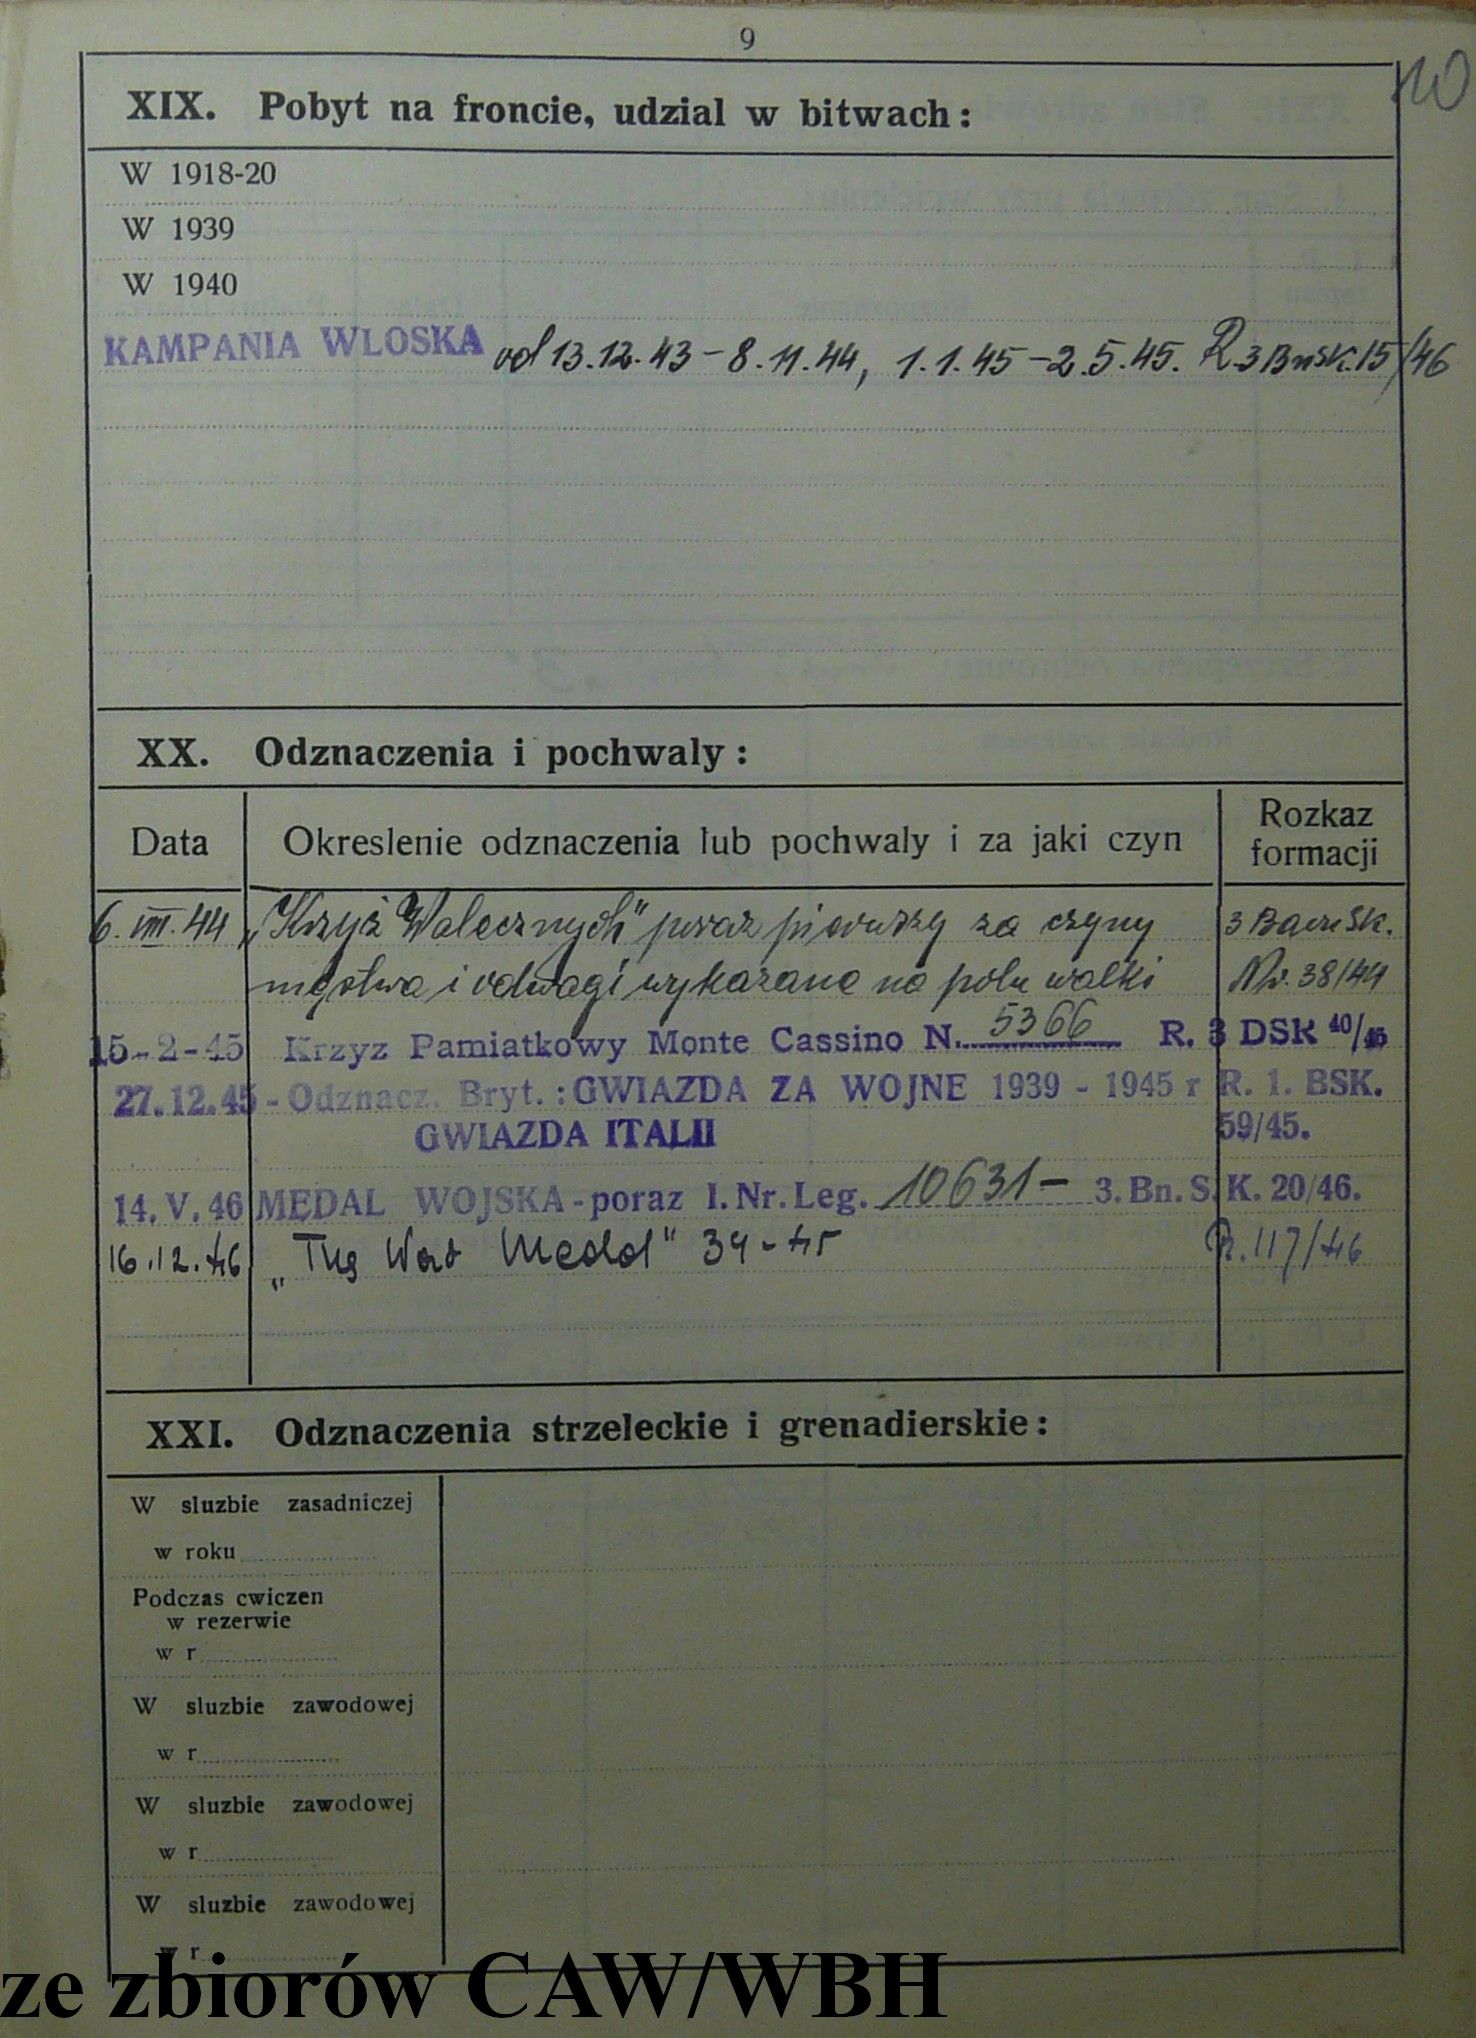 9
10
XIX. Pobyt na froncie, udzial w bitwach:
W 1918-20
W 1939
W 1940
KAMPANIA WLOSKA od 13.12.43 – 8.11.44, 1.1.45 – 2.5.45. R.3 BnSK.15/46
XX. Odznaczenia i pochwaly:
Data Okreslenie odznaczenia lub pochwaly i za jaki czyn Rozkaz formacji
6.VIII.44 „Krzyż Walecznych" poraz pierwszy za czyny 3 Baonu Sk.
męstwa i odwagi wykazane na polu walki Nr. 38/44
15-2-45 Krzyz Pamiatkowy Monte Cassino N. 5366 R. 3 DSK 40/45
27.12.45 - Odznacz. Bryt.: GWIAZDA ZA WOJNE 1939 - 1945 r R. 1. BSK.
GWIAZDA ITALII 59/45.
14.V.46 MEDAL WOJSKA - poraz I. Nr. Leg. 10631 – 3. Bn. S.K. 20/46.
16.12.46 „The War Medal" 39-45 R.117/46
XXI. Odznaczenia strzeleckie i grenadierskie:
W sluzbie zasadniczej
w roku
Podczas cwiczen
w rezerwie
w r
W sluzbie zawodowej
w r
W sluzbie zawodowej
w r
W sluzbie zawodowej
w r
ze zbiorów CAW/WBH